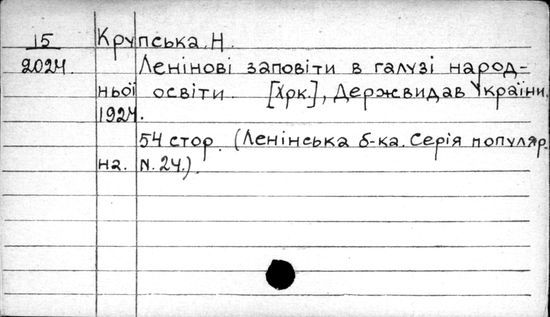 15 Крупська. Н.
2024. Ленінові заповіти в галузі народ-
ньої освіти [Хрк.], Держвидав України.
1924.
54 стор. (Ленінська б-ка. Серія популяр-
на. N. 24.).